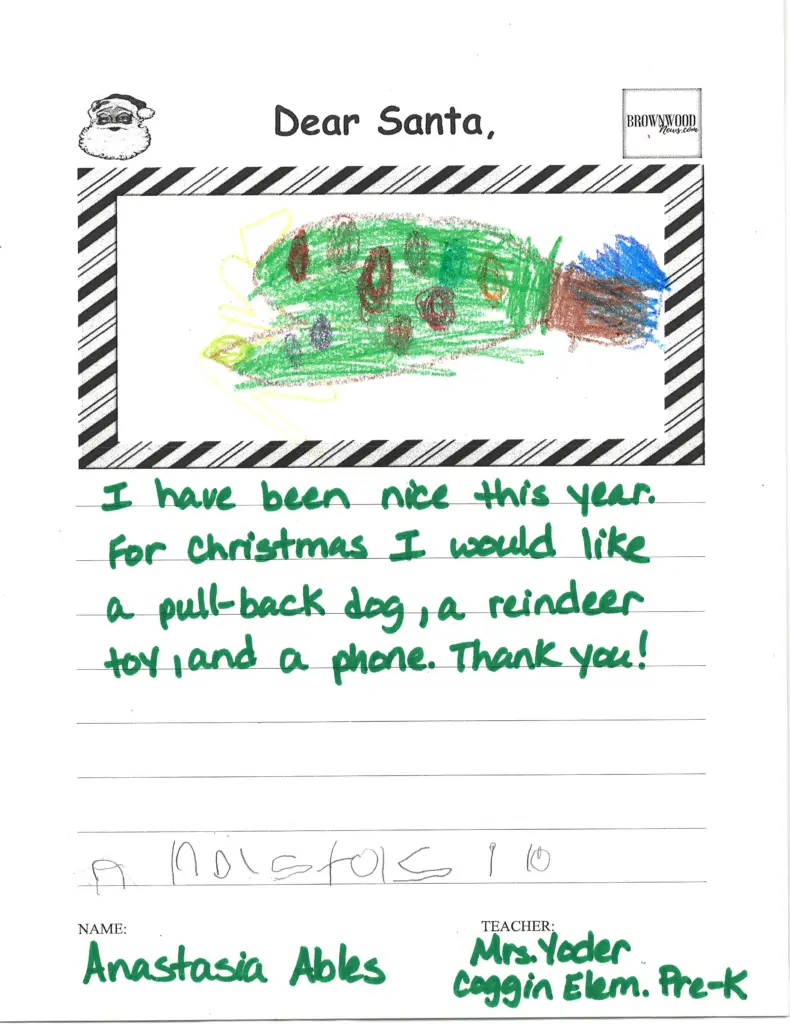 Dear Santa,
BROWNWOOD
News.com
I have been nice this year.
For Christmas I would like
a pull-back dog, a reindeer
toy, and a phone. Thank you!
NAME:
TEACHER:
Anastasia Ables
Mrs. Yoder
Coggin Elem. Pre-K